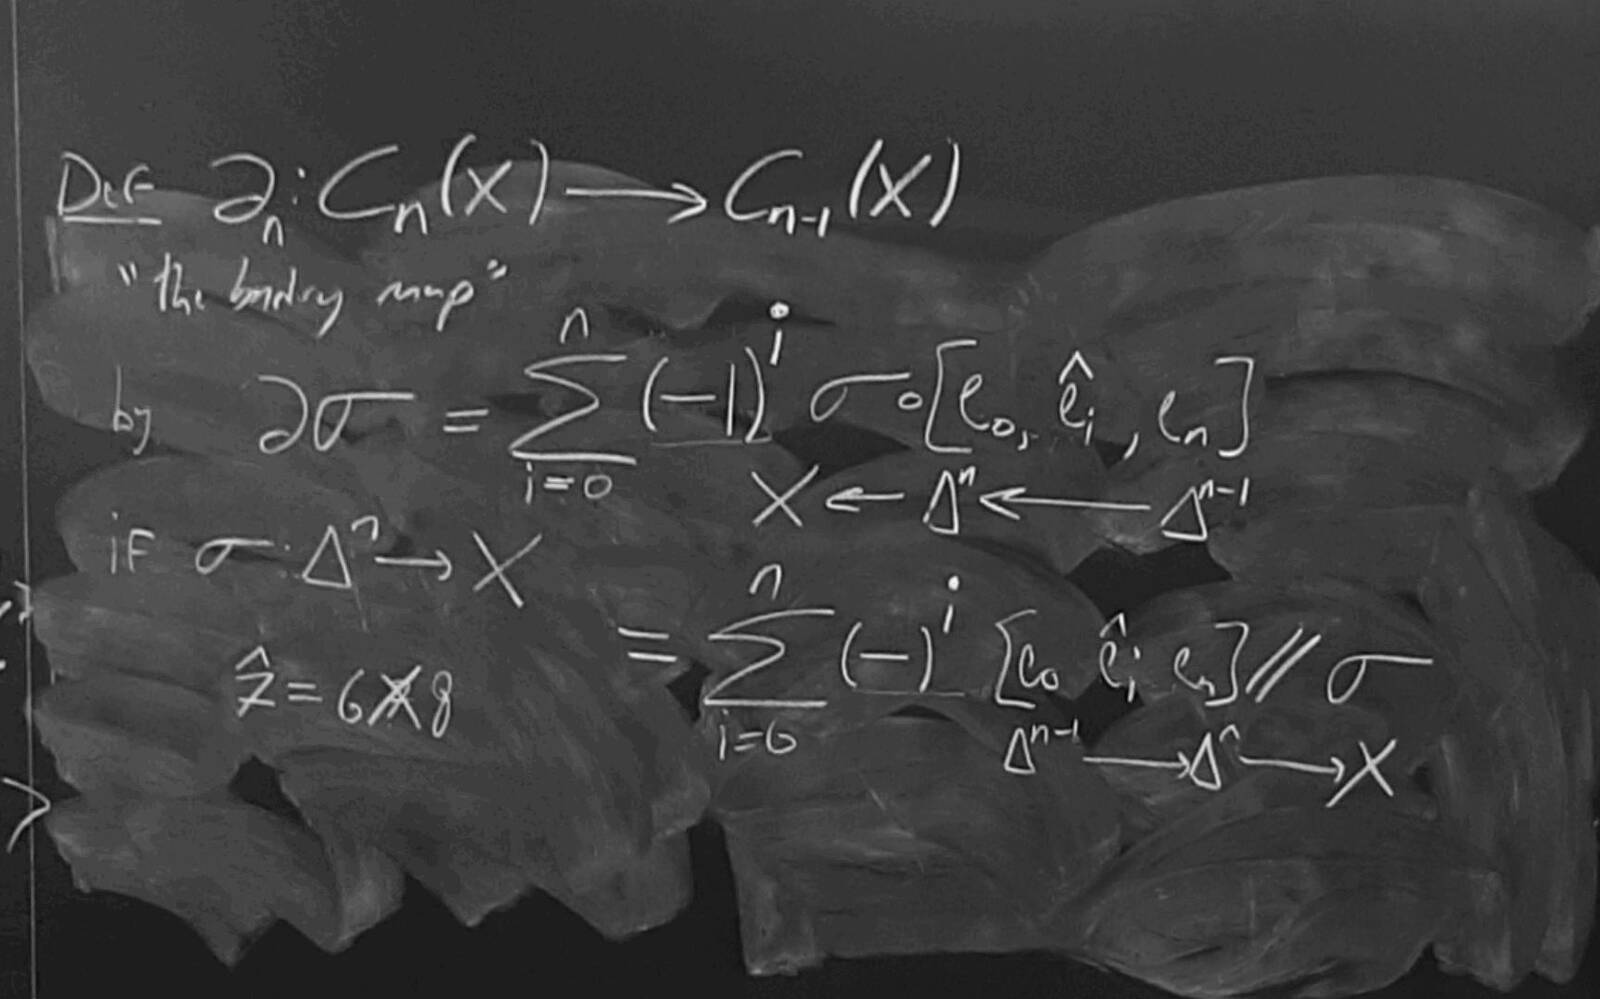 Def ∂ₙ: Cₙ(X) ⟶ Cₙ₋₁(X)
"the bndry map"
by ∂σ = ∑_{i=0}^{n} (-1)^i σ∘[e₀, ê_i, eₙ]
X ← Δⁿ ⟵ Δⁿ⁻¹
if σ: Δⁿ → X
= ∑_{i=0}^{n} (-)^i [e₀ ê_i eₙ] // σ
7̂ = 6 7 8
Δⁿ⁻¹ ⟶ Δⁿ ⟶ X